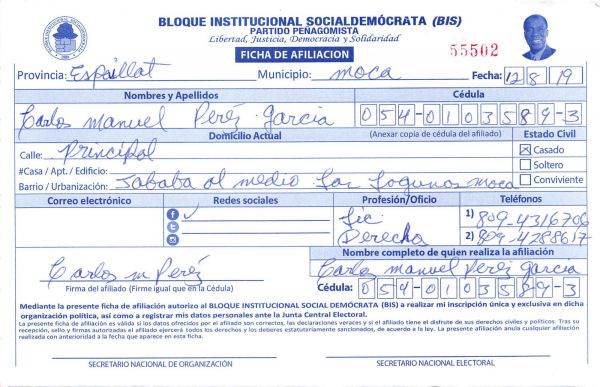 BLOQUE INSTITUCIONAL SOCIALDEMÓCRATA (BIS)
PARTIDO PEÑAGOMISTA
Libertad, Justicia, Democracia y Solidaridad
FICHA DE AFILIACION
55502
Provincia: Espaillat Municipio: moca Fecha: 12 8 19
Nombres y Apellidos Cédula
Carlos manuel Peréz garcia 054-0103589-3
Domicilio Actual (Anexar copia de cédula del afiliado) Estado Civil
Calle: Principal Casado
#Casa / Apt. / Edificio: Soltero
Barrio / Urbanización: al medio moca Conviviente
Correo electrónico Redes sociales Profesión/Oficio Teléfonos
Lic. 1) 809-4316706
Derecho 2) 809-4288617
Nombre completo de quien realiza la afiliación
Carlos m Peréz Carlos manuel Peréz garcia
Firma del afiliado (Firme igual que en la Cédula) Cédula: 054-0103589-3
Mediante la presente ficha de afiliación autorizo al BLOQUE INSTITUCIONAL SOCIAL DEMÓCRATA (BIS) a realizar mi inscripción única y exclusiva en dicha
organización política, así como a registrar mis datos personales ante la Junta Central Electoral.
La presente ficha de afiliación es válida si los datos ofrecidos por el afiliado son correctos, las declaraciones veraces y si el afiliado tiene el disfrute de sus derechos civiles y políticos. Tras su
recepción, sello y firmas autorizadas el afiliado ejercerá todos los derechos y los deberes estatutariamente sancionados, de acuerdo a la ley. La presente afiliación anula cualquier afiliación
realizada con anterioridad a la fecha que aparece en esta ficha.
SECRETARIO NACIONAL DE ORGANIZACIÓN SECRETARIO NACIONAL ELECTORAL